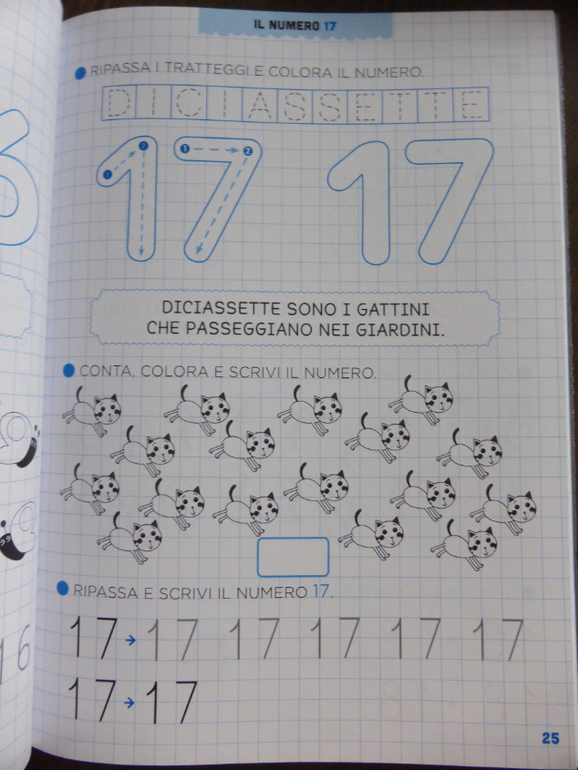 IL NUMERO 17
RIPASSA I TRATTEGGI E COLORA IL NUMERO.
DICIASSETTE
1 2 1 2
17 17
DICIASSETTE SONO I GATTINI
CHE PASSEGGIANO NEI GIARDINI.
CONTA, COLORA E SCRIVI IL NUMERO.
RIPASSA E SCRIVI IL NUMERO 17.
17 → 17 17 17 17 17
17 → 17
16
25